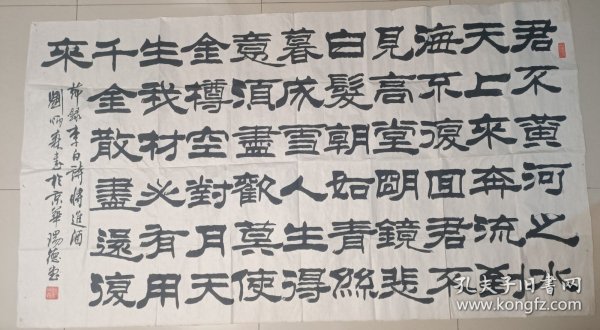 君不黄河之水
天上來奔流到
海不復回君不
見高堂明鏡悲
白髮朝如青絲
暮成雪人生得
意須盡歡莫使
金樽空對月天
生我材必有用
千金散盡還復
來
節録李白詩將進酒
劉炳森書於京華
孔夫子旧书网
www.kongfz.com